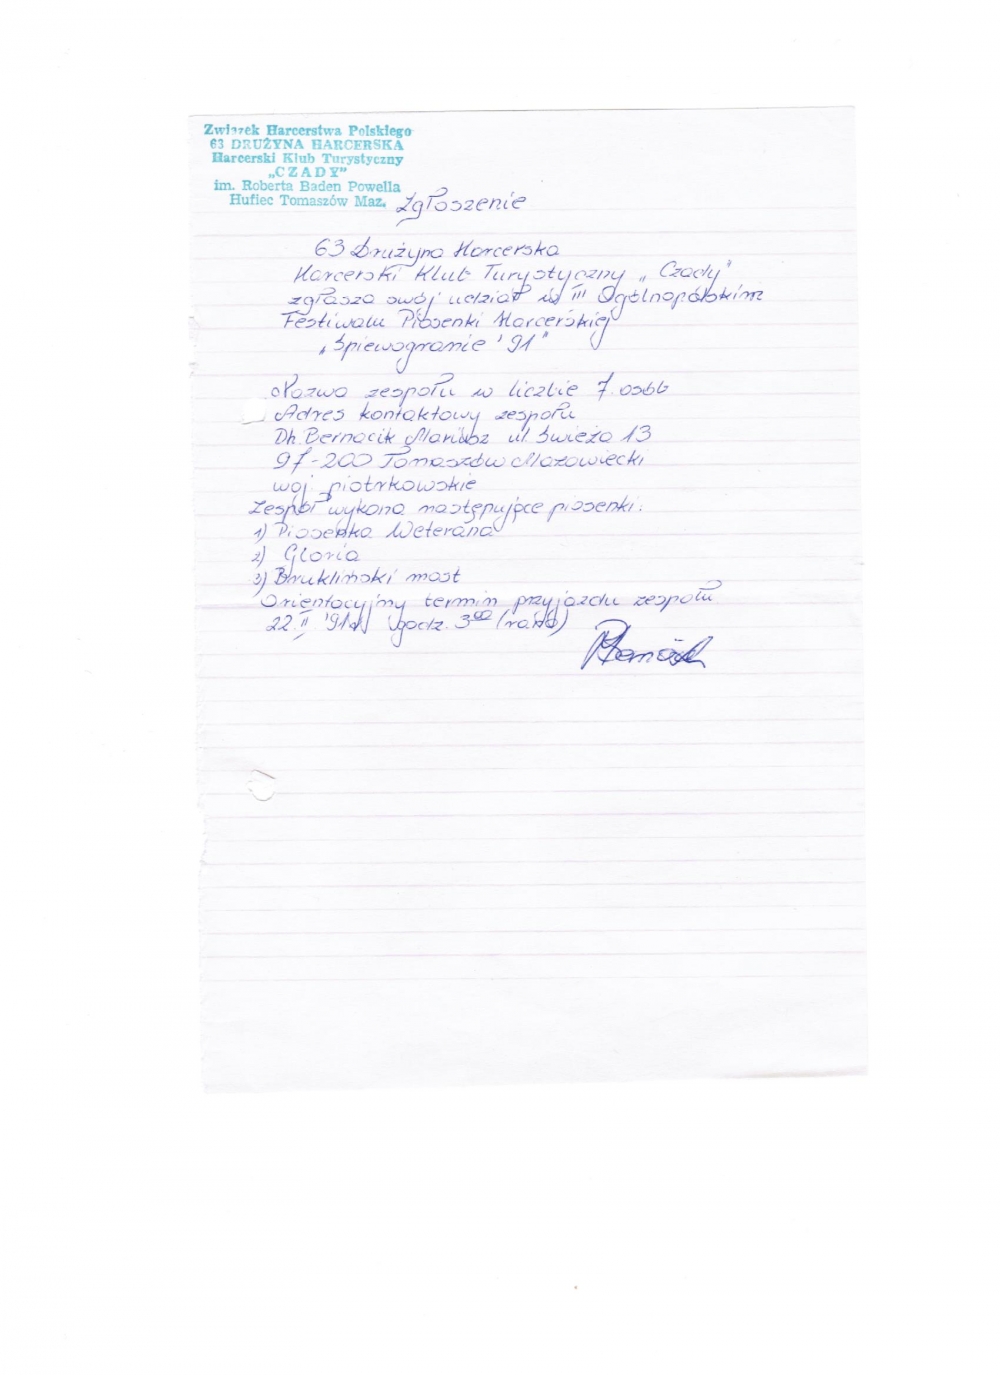 Związek Harcerstwa Polskiego
63 DRUŻYNA HARCERSKA
Harcerski Klub Turystyczny
„CZADY"
im. Roberta Baden Powella
Hufiec Tomaszów Maz.
Zgłoszenie
63 Drużyna Harcerska
Harcerski Klub Turystyczny „Czady"
zgłasza swój udział w III Ogólnopolskim
Festiwalu Piosenki Harcerskiej
„Śpiewogranie '91"
Nazwa zespołu w liczbie 7. osób
Adres kontaktowy zespołu
Dh. Bernacik Mariusz ul. Świeża 13
97-200 Tomaszów Mazowiecki
woj piotrkowskie
Zespół wykona następujące piosenki:
1) Piosenka Weterana
2) Gloria
3) Brukliński most
Orientacyjny termin przyjazdu zespołu
22.II '91r godz. 3⁰⁰ (rano)